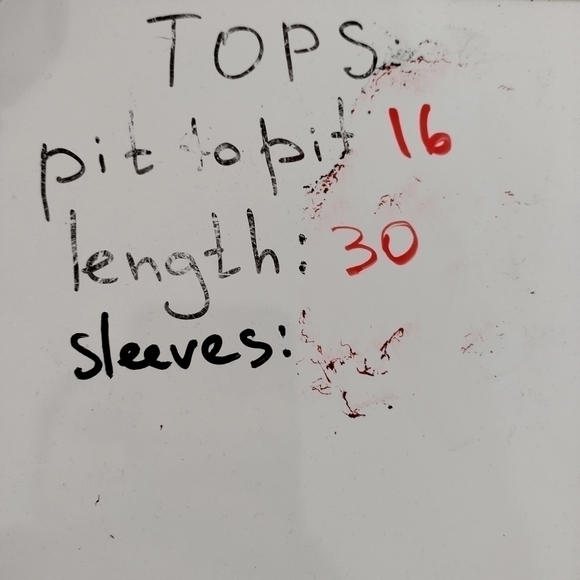 TOPS
pit to pit 16
length: 30
sleeves: